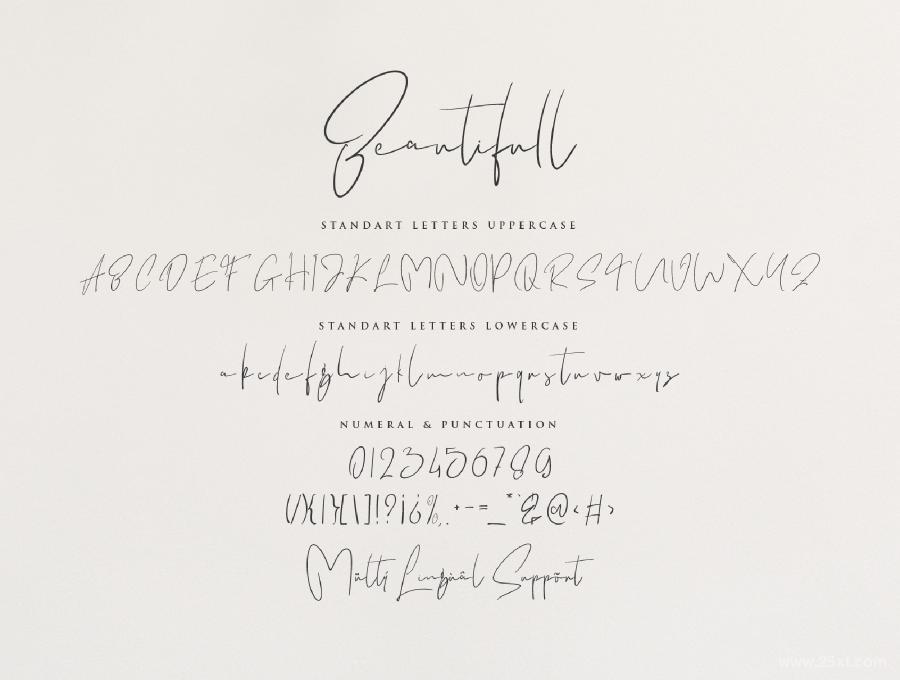 Beautifull
STANDART LETTERS UPPERCASE
ABCDEFGHIJKLMNOPQRSTUVWXYZ
STANDART LETTERS LOWERCASE
abcdefghijklmnopqrstuvwxyz
NUMERAL & PUNCTUATION
0123456789
(/){|}[\]!?¡¿%,.+-=_*'&@<#>
Múltí Língüâl Sùppört
www.25xt.com